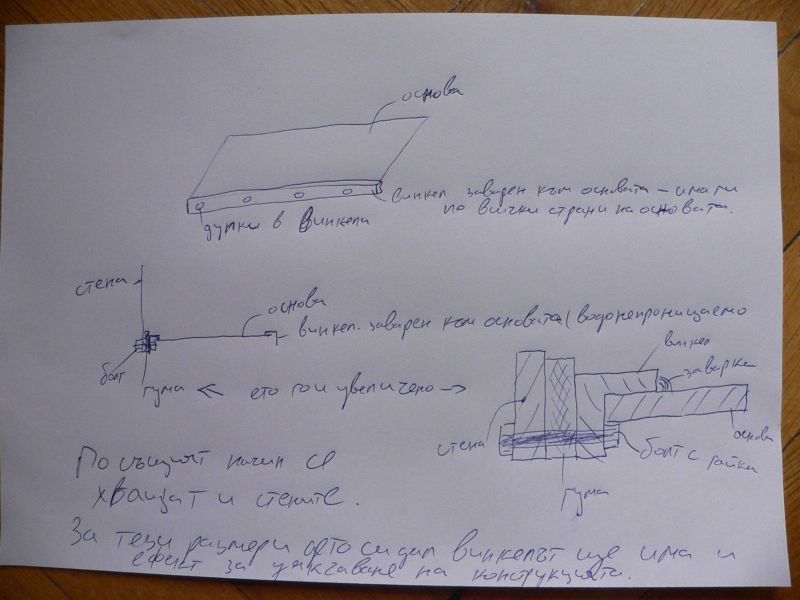 основа
винкел заварен към основата – има ги
по всички страни на основата.
дупки в винкела
стена
основа
винкел. заварен към основата (водонепроницаемо
болт
гума
ето го и увеличено
винкел
заварка
стена
основа
болт с гайка
гума
По същият начин се
хващат и стените.
За тези размери дето си дал винкелът ще има и
ефект за укрепване на конструкцията.